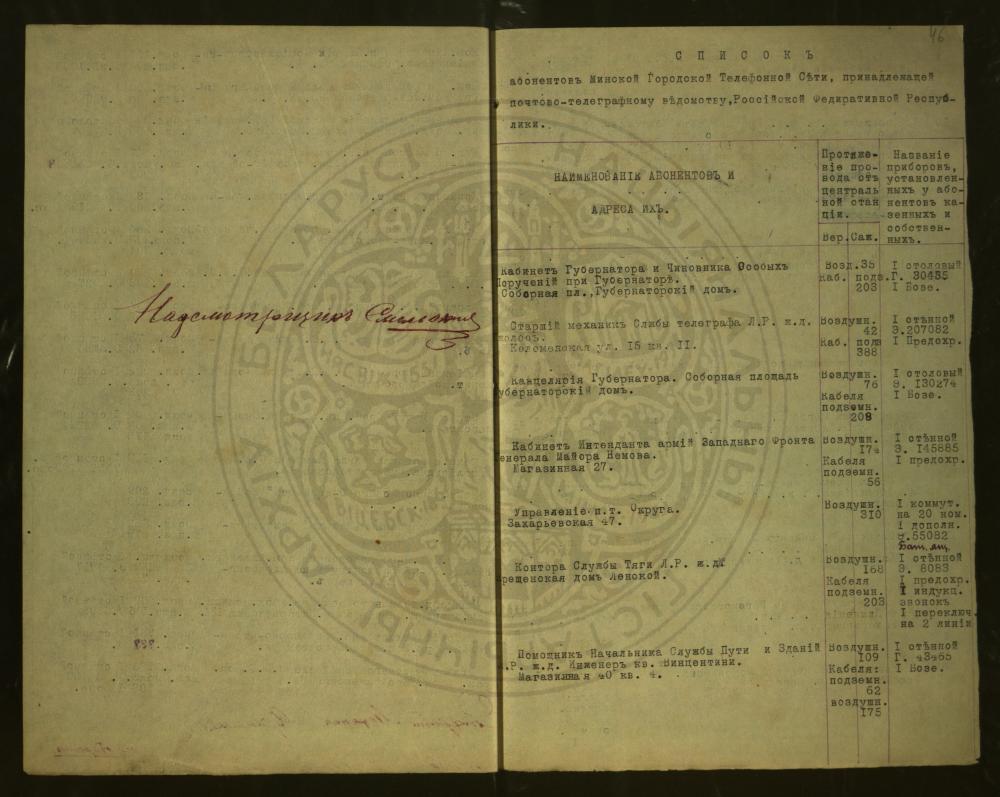 Надсмотрщикъ
46
СПИСОКЪ
абонентовъ Минской Городской Телефонной Сѣти, принадлежащей
почтово-телеграфному вѣдомству,Россійской Федиративной Респуб-
лики.
НАИМЕНОВАНІЕ АБОНЕНТОВЪ И
АДРЕСА ИХЪ.
Протяже-
ніе про-
вода отъ
централь
ной стан
ціи.
Вер.Саж.
Названіе
приборовъ,
установлен-
ныхъ у або-
нентовъ ка-
зенныхъ и
собствен-
ныхъ.
Кабинетъ Губернатора и Чиновника Особыхъ
Порученій при Губернаторѣ.
Соборная пл.,Губернаторскій домъ.
Возд.35
Каб. подз.
203
I столовый
Г. 30435
I Возе.
Старшій механикъ Слжбы телеграфа Л.Р. ж.д.
Коломенская ул. I5 кв. II.
Воздушн.
42
Каб. подз
388
I стѣнной
Э.207082
I Предохр.
Канцелярія Губернатора. Соборная площадь
убернаторскій домъ.
Воздушн.
76
Кабеля
подземн.
208
I столовый
Э. I30274
I Возе.
Кабинетъ Интенданта армій Западнаго Фронта
енерала Майора Немова.
Магазинная 27.
Воздушн.
I74
Кабеля
подземн.
56
I стѣнной
Э. I45885
I предохр.
Управленіе п.т. Округа.
Захарьевская 47.
Воздушн.
3I0
I коммут.
на 20 ном.
I дополн.
55082
Бат. ящ.
Контора Службы Тяги Л.Р. ж.д.
рещенская домъ Ленской.
Воздушн.
I68
Кабеля
подземн.
203
I стѣнной
Э. 8083
I предохр.
I индукц.
звонокъ
I переключ.
на 2 линіи
Помощникъ Начальника Службы Пути и Зданій
.Р. ж.д. Инженеръ кв. Винцентини.
Магазинная 40 кв. 4.
Воздушн.
I09
Кабеля:
подземн.
62
воздушн.
I75
I стѣнной
Г. 43465
I Возе.